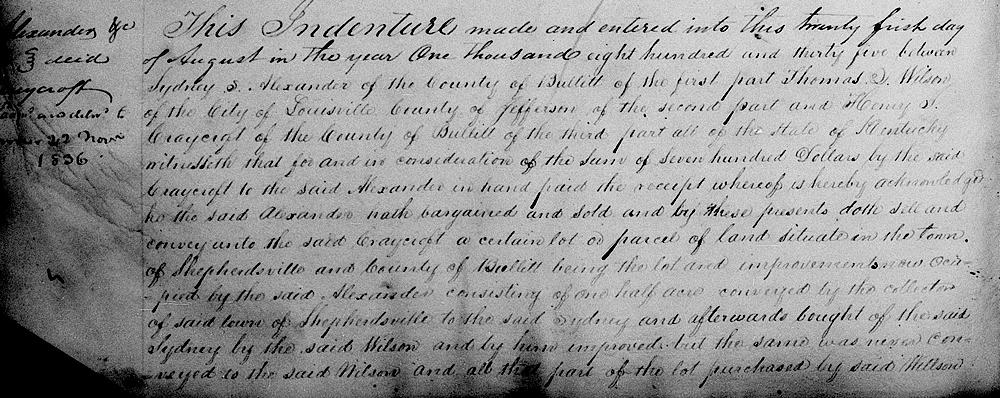 Alexander &c
deed
Craycroft
22 Novr
1836
This Indenture made and entered into this twenty first day
of August in the year One thousand eight hundred and thirty five between
Sydney S. Alexander of the County of Bullitt of the first part Thomas S. Wilson
of the City of Louisville County of Jefferson of the second part and Henry S.
Craycroft of the County of Bullitt of the third part all of the State of Kentucky
witnesseth that for and in consideration of the sum of Seven hundred Dollars by the said
Craycroft to the said Alexander in hand paid the receipt whereof is hereby acknowledged
he the said Alexander hath bargained and sold and by these presents doth sell and
convey unto the said Craycroft a certain lot or parcel of land situate in the town
of Shepherdsville and County of Bullitt being the lot and improvements now occu-
-pied by the said Alexander consisting of one half acre conveyed by the collector
of said town of Shepherdsville to the said Sydney and afterwards bought of the said
Sydney by the said Wilson and by him improved but the same was never con-
-veyed to the said Wilson and all that part of the lot purchased by said Willson